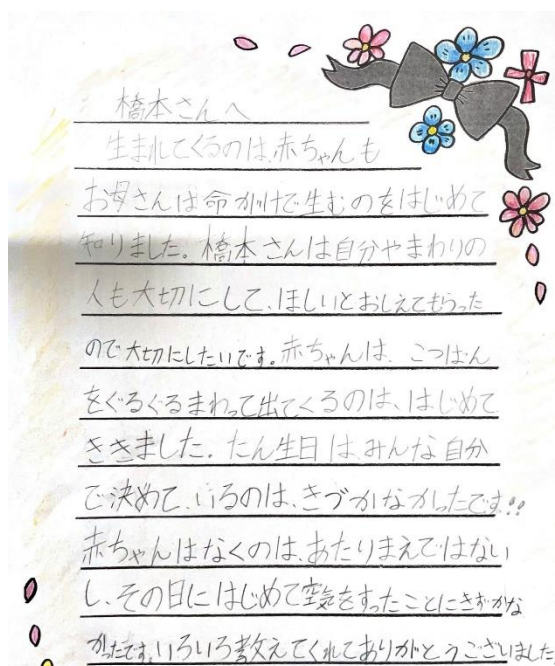 橋本さんへ
生まれてくるのは、赤ちゃんも
お母さんは命がけで生むのをはじめて
知りました。橋本さんは自分やまわりの
人も大切にして、ほしいとおしえてもらった
ので大切にしたいです。赤ちゃんは、こつばん
をぐるぐるまわって出てくるのは、はじめて
ききました。たん生日は、みんな自分
で決めて、いるのは、きづかなかったです!!
赤ちゃんはなくのは、あたりまえではない
し、その日にはじめて空気をすったことにきずかな
かったです。いろいろ教えてくれてありがとうございました。